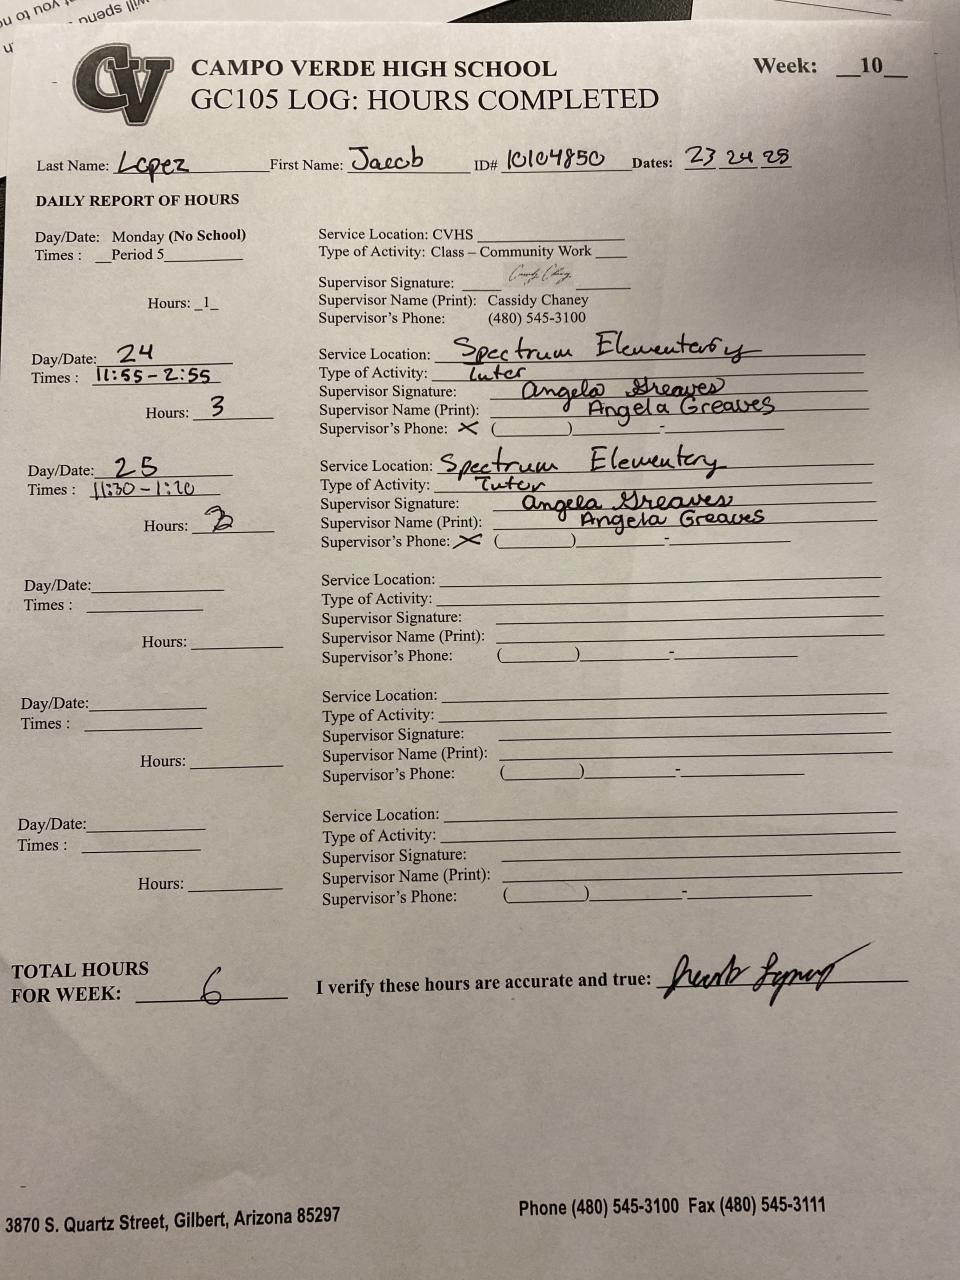 CV
CAMPO VERDE HIGH SCHOOL
Week: __10__
GC105 LOG: HOURS COMPLETED
Last Name: Lopez First Name: Jacob ID# 10104850 Dates: 23 24 25
DAILY REPORT OF HOURS
Day/Date: Monday (No School)
Service Location: CVHS
Times : __Period 5
Type of Activity: Class – Community Work
Supervisor Signature:
Hours: _1_
Supervisor Name (Print): Cassidy Chaney
Supervisor's Phone: (480) 545-3100
Day/Date: 24
Service Location: Spectrum Elementary
Times : 11:55 - 2:55
Type of Activity: Tutor
Supervisor Signature: Angela Greaves
Hours: 3
Supervisor Name (Print): Angela Greaves
Supervisor's Phone: X ( ) -
Day/Date: 25
Service Location: Spectrum Elementary
Times : 11:30 - 1:20
Type of Activity: Tutor
Supervisor Signature: Angela Greaves
Hours: 2
Supervisor Name (Print): Angela Greaves
Supervisor's Phone: X ( ) -
Day/Date:
Service Location:
Times :
Type of Activity:
Supervisor Signature:
Hours:
Supervisor Name (Print):
Supervisor's Phone: ( ) -
Day/Date:
Service Location:
Times :
Type of Activity:
Supervisor Signature:
Hours:
Supervisor Name (Print):
Supervisor's Phone: ( ) -
Day/Date:
Service Location:
Times :
Type of Activity:
Supervisor Signature:
Hours:
Supervisor Name (Print):
Supervisor's Phone: ( ) -
TOTAL HOURS
FOR WEEK: 6
I verify these hours are accurate and true:
3870 S. Quartz Street, Gilbert, Arizona 85297
Phone (480) 545-3100 Fax (480) 545-3111